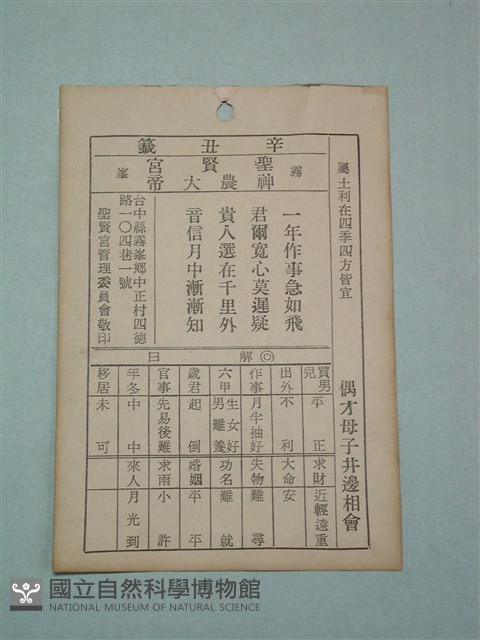 屬土利在四季四方皆宜
偶才母子井邊相會
辛丑籤
霧峯
聖賢宮
神農大帝
一年作事急如飛
君爾寬心莫遲疑
貴人選在千里外
音信月中漸漸知
台中縣霧峯鄉中正村四德
路一〇四巷一號
聖賢宮管理委員會敬印
◎解曰
買男兒 平正 求財 近輕遠重
出外 不利 大命 安
作事 月半抽好 失物 難尋
六甲 生女好男難養 功名 難就
歲君 起倒 婚姻 平平
官事 先易後難 求雨 小許
年冬 中中 來人 月光到
移居 未可
國立自然科學博物館
NATIONAL MUSEUM OF NATURAL SCIENCE